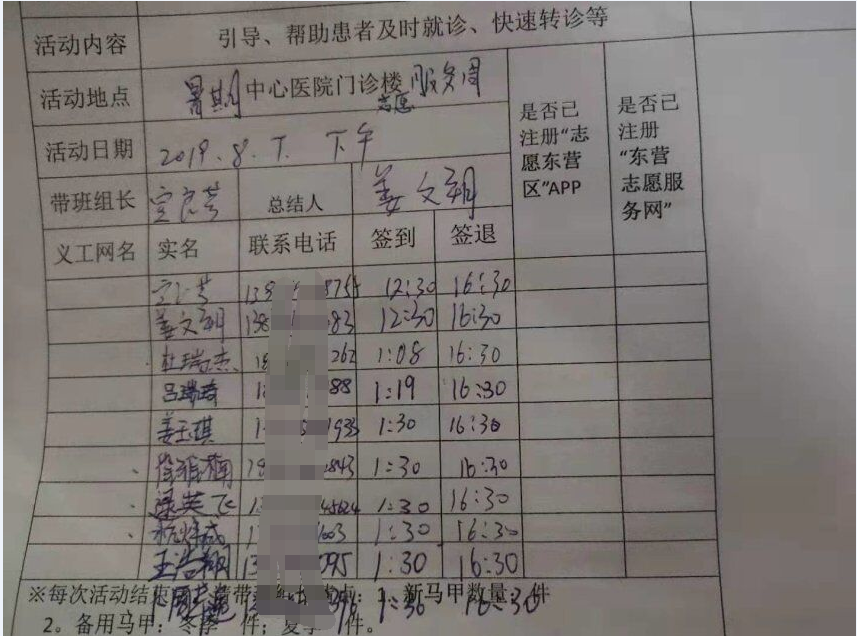 活动内容 引导、帮助患者及时就诊、快速转诊等
活动地点 暑期中心医院门诊楼志愿服务周
是否已注册“志愿东营区”APP
是否已注册“东营志愿服务网”
活动日期 2019.8.7. 下午
带班组长 总结人 姜文朝
义工网名 实名 联系电话 签到 签退
138 8755 12:30 16:30
姜文朝 138 83 12:30 16:30
杜瑞杰 18 262 1:08 16:30
吕瑞琦 1 88 1:19 16:30
姜玉琪 1 1933 1:30 16:30
18 2843 1:30 16:30
梁英飞 1 1:30 16:30
1 1:30 16:30
王浩翔 13 095 1:30 16:30
※每次活动结束 带 1、新马甲数量: 件
1:30 16:30
2。备用马甲:冬季 件;夏季 件。